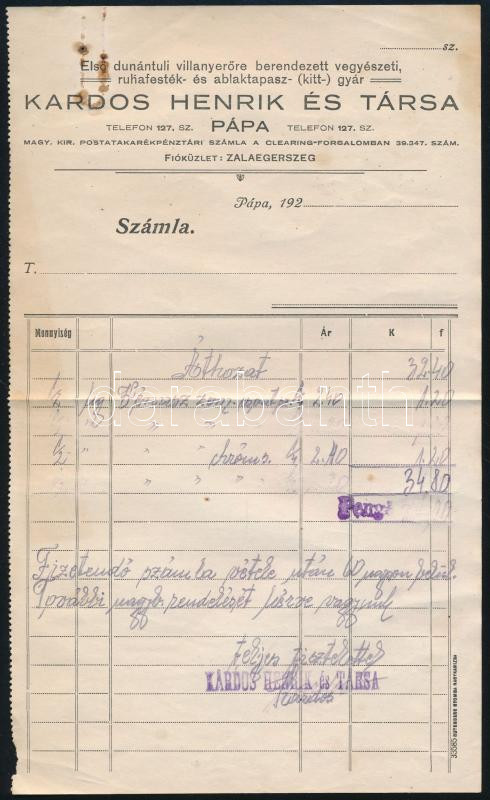 sz.
Első dunántuli villanyerőre berendezett vegyészeti,
ruhafesték- és ablaktapasz- (kitt-) gyár
KARDOS HENRIK ÉS TÁRSA
TELEFON 127. SZ. PÁPA TELEFON 127. SZ.
MAGY. KIR. POSTATAKARÉKPÉNZTÁRI SZÁMLA A CLEARING-FORGALOMBAN 39.247. SZÁM.
FIÓKÜZLET: ZALAEGERSZEG
Pápa, 192
Számla.
T.
Mennyiség Ár K f
Áthozat 32.40
1/2 " " " 2.40 1.20
34.80
Pengő
Fizetendő számla vétele után 60 napon belül.
További nagyb. rendelését kérve vagyunk
teljes tisztelettel
KARDOS HENRIK és TÁRSA
Kardos
darabanth